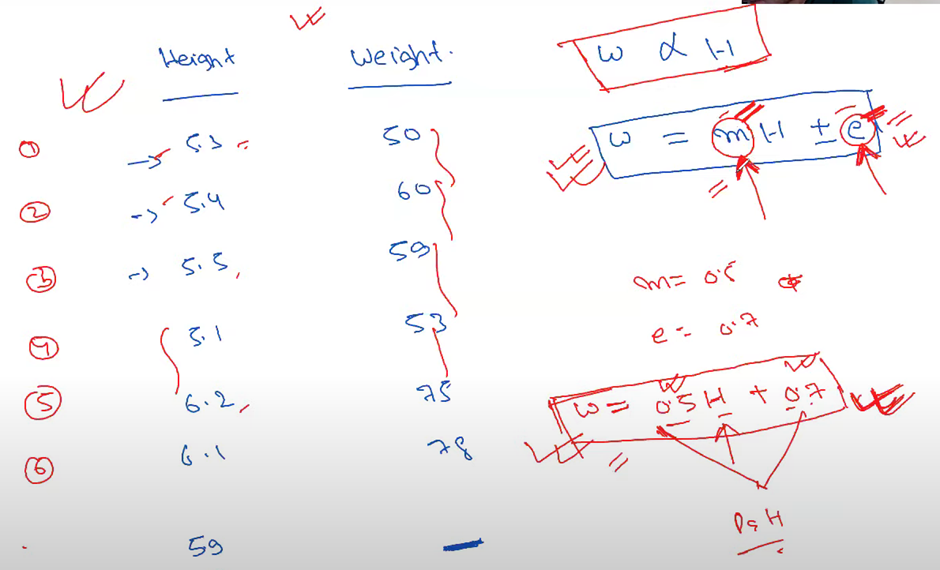 Height Weight.
① → 5.3 50
② → 5.4 60
③ → 5.5 59
④ 5.1 53
⑤ 6.2 75
⑥ 6.1 78
59 —
W ∝ H
W = m H ± e
m = 0.5
e = 0.7
W = 0.5 H + 0.7